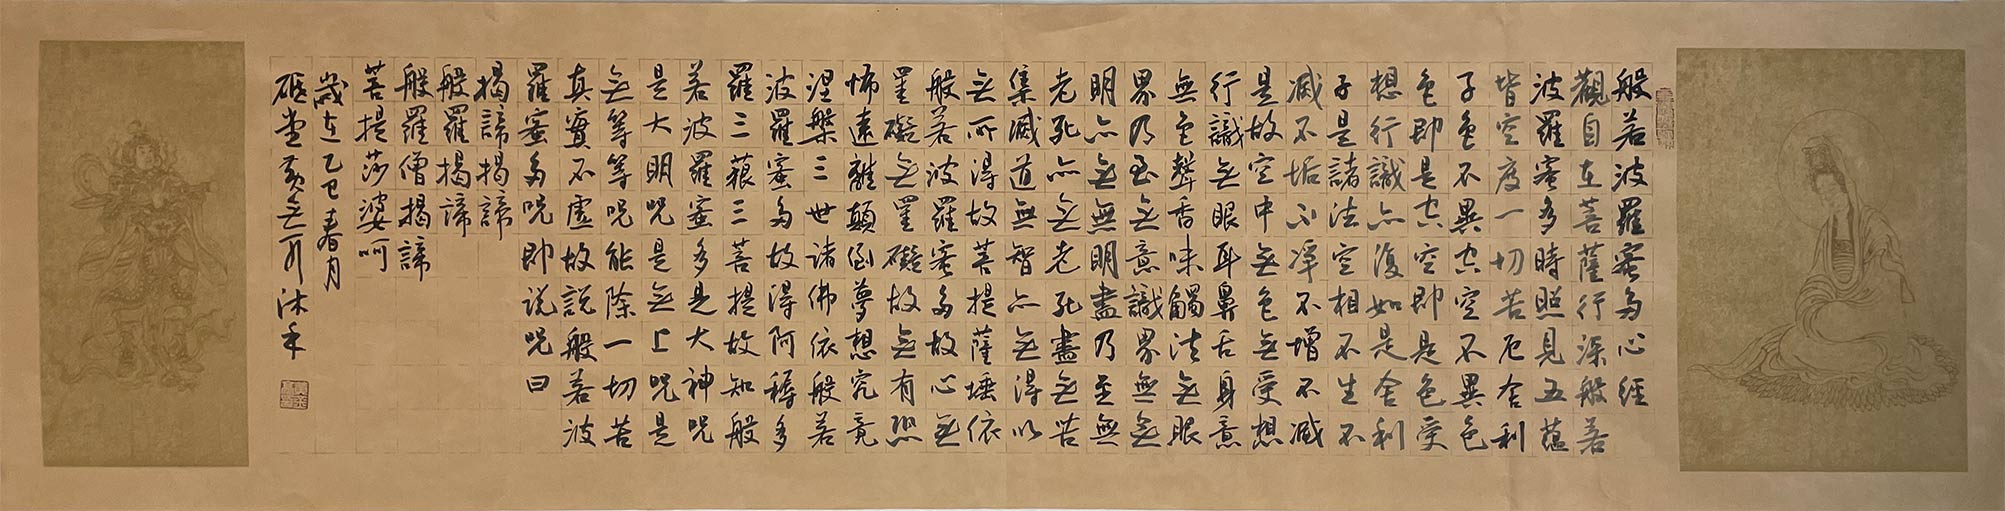 般若波羅蜜多心經
觀自在菩薩行深般若
波羅蜜多時照見五蘊
皆空度一切苦厄舍利
子色不異空空不異色
色即是空空即是色受
想行識亦復如是舍利
子是諸法空相不生不
滅不垢不淨不增不減
是故空中無色無受想
行識無眼耳鼻舌身意
無色聲香味觸法無眼
界乃至無意識界無無
明亦無無明盡乃至無
老死亦無老死盡無苦
集滅道無智亦無得以
無所得故菩提薩埵依
般若波羅蜜多故心無
罣礙無罣礙故無有恐
怖遠離顛倒夢想究竟
涅槃三世諸佛依般若
波羅蜜多故得阿耨多
羅三藐三菩提故知般
若波羅蜜多是大神咒
是大明咒是無上咒是
無等等咒能除一切苦
真實不虛故說般若波
羅蜜多咒即說咒曰
揭諦揭諦
般羅揭諦
般羅僧揭諦
菩提莎婆呵
歲在乙巳春月
堂黃沐手